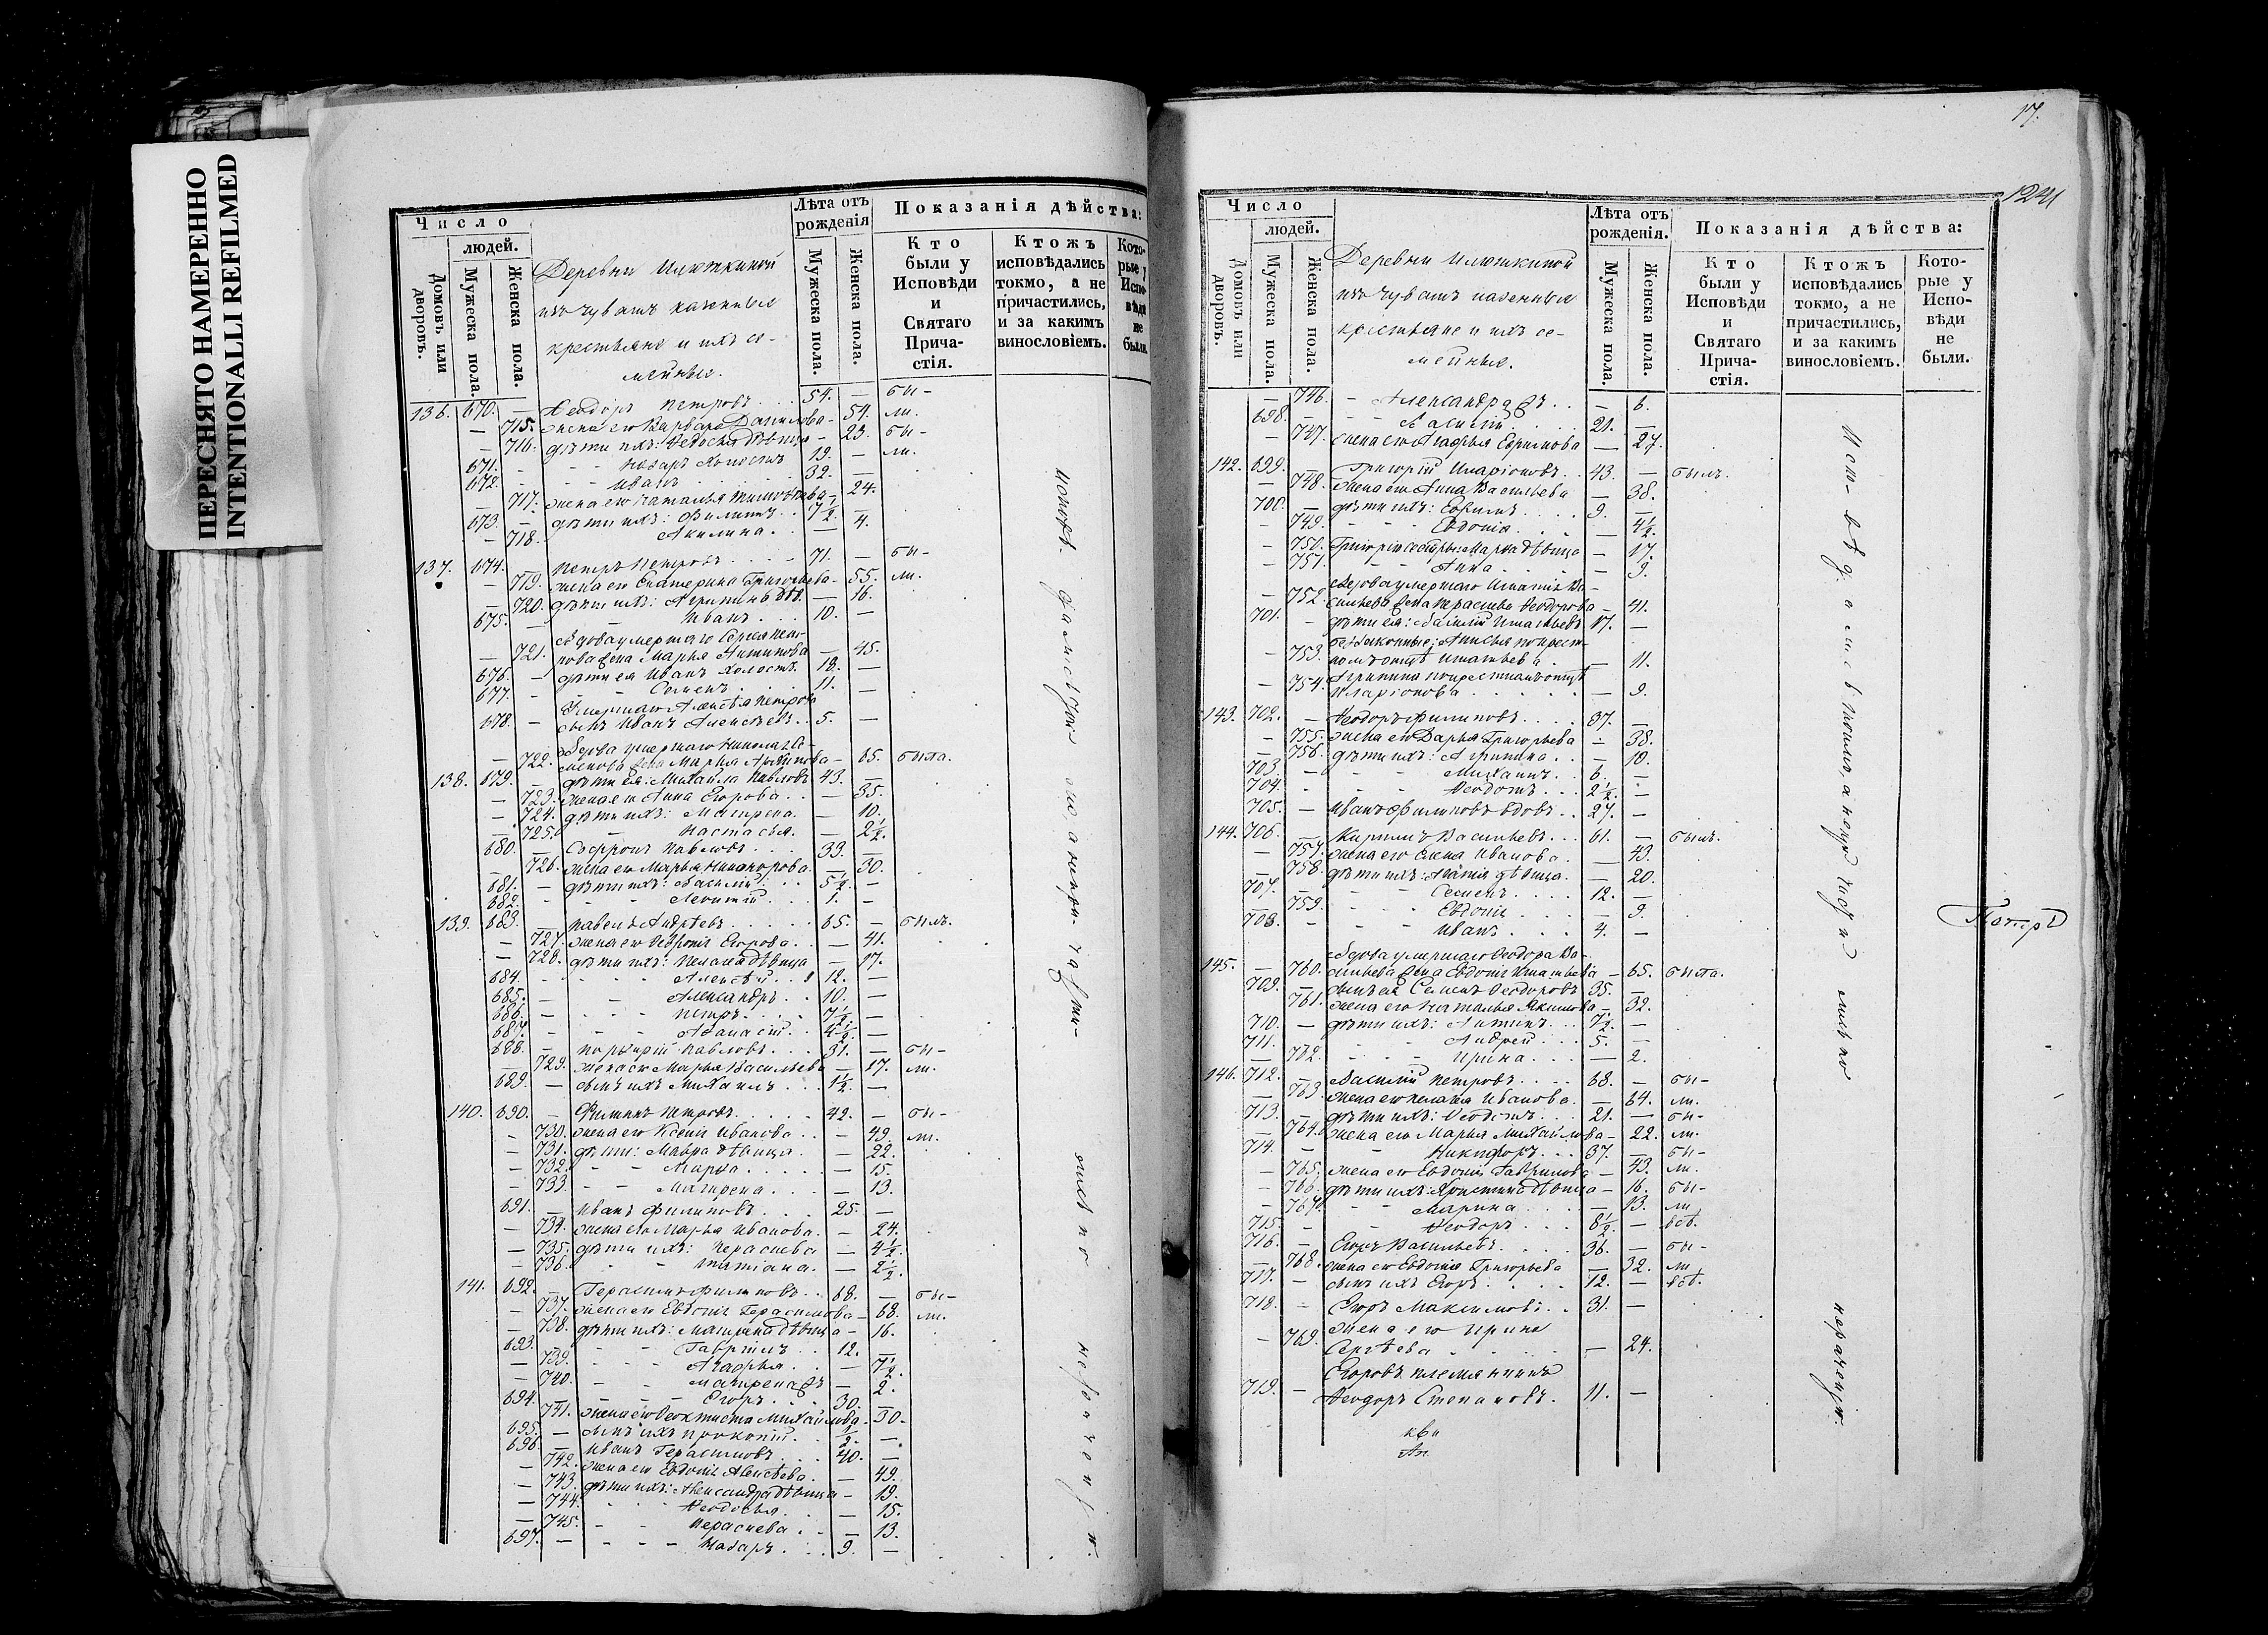 ПЕРЕСНЯТО НАМЕРЕННО
INTENTIONALLI REFILMED
Число
людей.
Домовъ или дворовъ.
Мужеска пола.
Женска пола.
Деревни Илюткиной
изъ чувашъ казенные
крестьяне и ихъ се-
мейные.
Лѣта отъ рожденія
Мужеска пола.
Женска пола.
Показанія дѣйства:
Кто были у Исповѣди и Святаго Прича-стія.
Ктожъ исповѣдались токмо, а не причастились, и за какимъ винословіемъ.
Кото-рые у Испо-вѣди не были.
136. 670. — Ѳеодоръ Петровъ . . . 54. — бы-
— 715. жена его Варвара Данилова — 54. ли.
— 716. дѣти ихъ: Ѳедосья дѣвица — 23. бы-
671. - - Назаръ Холостъ 19. — ли.
672. - - - Иванъ 32. —
— 717. жена его Наталья — 24.
673. — дѣти ихъ: Филиппъ . . 7 1/2. —
— 718. Акилина . . — 4.
137. 674. Петръ Петровъ . . . 71. — бы-
— 719. жена его Екатерина Григорьева — 55. ли.
— 720. дѣти ихъ: Агрипина дѣв. — 16.
675. — Иванъ . . . 10. —
— 721. Вдова умершаго Сергея Пет-
рова жена Марья Антипова — 45.
676. — дѣти ея Иванъ Холостъ. 18. —
677. - - Семенъ . . . 11. —
Умершаго Алексѣя Петрова
678. — сынъ Иванъ Алексѣевъ . . 5. —
Вдова умершаго Николая
— 722. жена Марья — 65. была.
138. 679. — дѣти ея: Михайла Павловъ 43. —
— 723. жена его Анна Егорова . . — 35.
— 724. дѣти ихъ: Матрена . — 10.
— 725. - Настасья . — 2 1/2.
680. — Софронъ Павловъ . . . 33. —
— 726. жена его Марья Никанорова — 30.
681. — дѣти ихъ: Василій . . 5 1/2. —
682. - - Леонтій . . . 1. —
139. 683. — Павелъ Андрѣевъ . . . . 65. — былъ.
— 727. жена его Егорова . . — 41.
— 728. дѣти ихъ: Пелагея дѣвица — 17.
684. - - - Алексѣй . . 12. —
685. — - - Александръ . . 10. —
686. — - - - Петръ . . . 7 1/2. —
687. — - - Аѳанасій . . 4 1/2. —
688. — Порфирій Павловъ . . . 31. — бы-
— 729. жена его Марья Васильева — 17. ли.
689. — сынъ ихъ Михаилъ . . . 1 1/2. —
140. 690. — Филиппъ Петровъ . . . . 42. — бы-
— 730. жена его Ксенія Иванова . . — 49. ли.
— 731. дѣти: Мавра дѣвица . — 22.
— 732. - - Марѳа . . . . — 15.
— 733. - - Матрена . . . — 13.
691. — Иванъ Филиповъ . . . 25. —
— 734. жена его Марья Иванова . — 24.
— 735. дѣти ихъ: Параскева — 4 1/2.
— 736. - - Татіана . — 2 1/2.
141. 692. — Герасимъ Филиповъ . . 68. — бы-
— 737. жена его Евдокія Герасимова — 68. ли.
— 738. дѣти ихъ: Матрена дѣвица — 16.
693. — - - Гаврилъ . . 12. —
— 739. - - Агафья . . — 7 1/2.
— 740. - - Матрена — 2.
694. — - - Егоръ . . . 30. —
— 741. жена его Ѳеоктиста Михайлова — 30.
695. — сынъ ихъ Прокопій . . 1/2. —
696. — Иванъ Герасимовъ . . . 40. —
— 742. жена его Евдокія Алексѣева . — 49.
— 743. дѣти ихъ: Александра дѣвица — 19.
— 744. - - Ѳеодосья . . . — 15.
— 745. - - Параскева . . — 13.
697. — - - - Назаръ . . . 9. —
17.
1241
Число
людей.
Домовъ или дворовъ.
Мужеска пола.
Женска пола.
Деревни Илюткиной
изъ чувашъ казенные
крестьяне и ихъ се-
мейные.
Лѣта отъ рожденія.
Мужеска пола.
Женска пола.
Показанія дѣйства:
Кто были у Исповѣди и Святаго Прича-стія.
Ктожъ исповѣдались токмо, а не причастились, и за какимъ винословіемъ.
Кото-рые у Испо-вѣди не были.
— 746. - Александра . . — 6.
698. — - - Василій . . . . 21. —
— 747. жена его Агафья Ефимова — 27.
142. 699. — Григорій Иларіоновъ . . 43. — былъ.
— 748. жена его Анна Васильева — 38.
700. — дѣти ихъ: Ефимъ . . . . 9. —
— 749. - - - Евдокія . . . — 4 1/2.
— 750. Григорія сестры: Марѳа дѣвица — 17.
— 751. - - Анна . . . . — 9.
Вдова умершаго Игнатія Ва-
— 752. сильева жена Параскева Ѳеодорова — 41.
701. — дѣти ея: Василій Игнатьевъ 17. —
незаконные: Анисья по крест-
— 753. ному отцѣ Игнатьева . — 11.
— 754. Агрипина по крестномъ отцѣ
Иларіонова . . . . . . — 9.
143. 702. — Ѳеодоръ Филиповъ . . . . 37. —
— 755. жена его Дарья Григорьева — 38.
— 756. дѣти ихъ: Агрипина . . — 10.
703. — - - Михаилъ . . 6. —
704. - - - Ѳеодотъ . . . 2 1/2. —
705. — Иванъ Филиповъ вдовъ . . 27. —
144. 706. — Кирилъ Васильевъ . . . 61. — былъ.
— 757. жена его Елена Иванова . — 43.
— 758. дѣти ихъ: дѣвица . — 20.
707. — - - Семенъ . . . . 12. —
— 759. - - Евдокія . . . . — 9.
708. - - - Иванъ . . . 4. —
Вдова умершаго Ѳеодора Ва-
145. — 760. сильева жена Евдокія Игнатьева — 65. была.
709. — сынъ ея Семенъ Ѳеодоровъ 35. —
— 761. жена его Наталья Якимова — 32.
710. — дѣти ихъ: Антипъ . . . 7 1/2. —
711. - - - Андрей . . . 5. —
— 762. - - - Ирина . . . — 2.
146. 712. — Василій Петровъ . . . . 68. — бы-
— 763. жена его Пелагея Иванова . — 64. ли.
713. — дѣти ихъ: Ѳеодотъ . . . 21. — бы-
— 764. жена его Марья Михайлова — 22. ли.
714. — - - Никифоръ . . . 37. — бы-
— 765. жена его Евдокія Гаврилова — 43. ли.
— 766. дѣти ихъ: Христина дѣвица — 16. бы-
— 767. - - Марина . . . . — 13. ли
715. — - - Ѳеодоръ . . . 8 1/2. —
716. — Егоръ Васильевъ . . . . 36. — бы-
— 768. жена его Евдокія Григорьева — 32. ли
717. — сынъ ихъ Егоръ . . . . 12. —
718. — Егоръ Максимовъ . . 31. —
жена его Ирина
— 769. Сергѣева — 24.
Егоровъ племянникъ
719. — Ѳеодоръ Степановъ . 11. —
Петръ